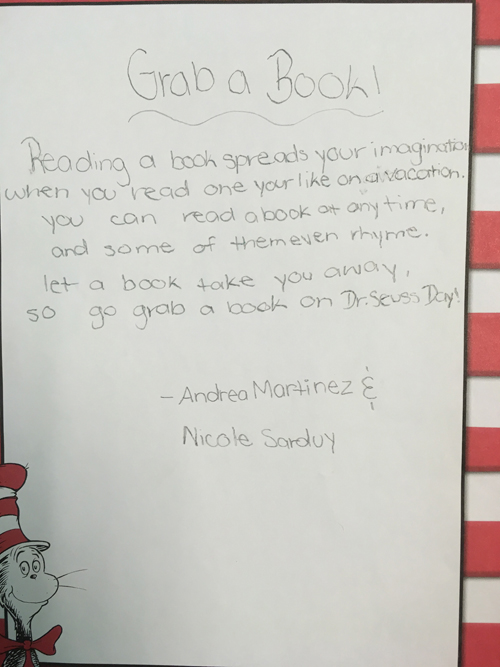 Grab a Book!
Reading a book spreads your imagination
when you read one your like on a vacation.
you can read a book at any time,
and some of them even rhyme.
let a book take you away,
so go grab a book on Dr. Seuss Day!
- Andrea Martinez &
Nicole Sarduy